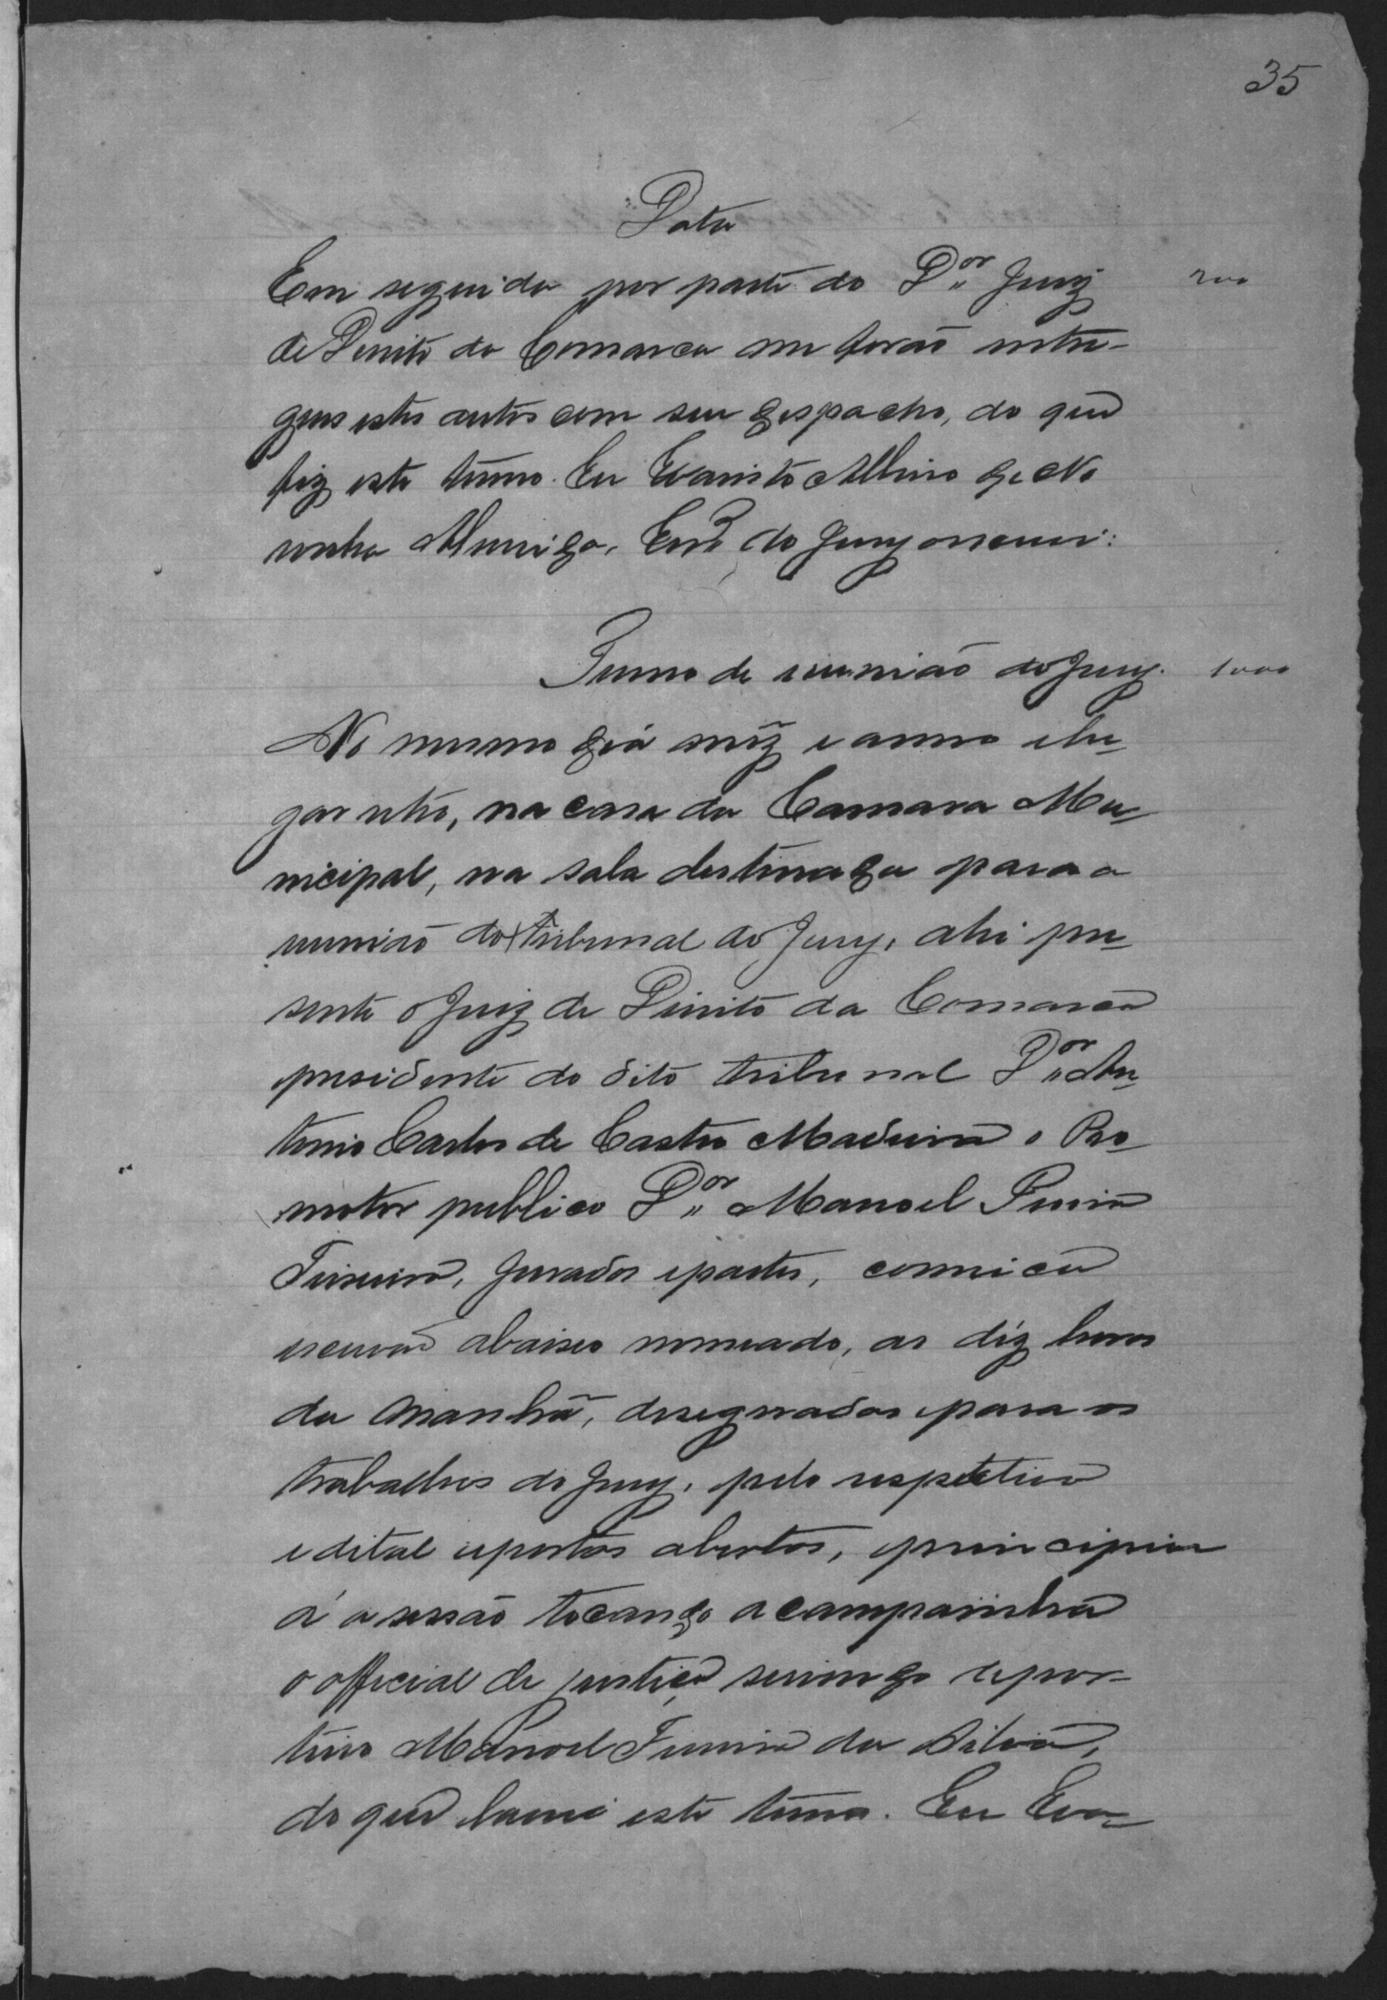 35
Data
Em seguida por parte do D.or Juiz 200
de Direito da Comarca me forão entre-
gues estes autos com seu despacho, do que
fiz este termo. Eu Evaristo Albino de No
ronha Almeida, Escr.m do Jury escrevi:
Termo de reunião do Jury. 1000
No mesmo dia mêz e anno e lu-
gar retro, na casa da Camara Mu-
nicipal, na sala destinada para a
reunião do Tribunal do Jury, ahi pre-
sente o Juiz de Direito da Comarca
presidente do dito tribunal D.or An-
tonio Carlos de Castro Madeira o Pro-
motor publico D.or Manoel
Teixeira, Jurados e partes, commigo
escrivão abaixo nomeado, as déz horas
da manhã, designadas para os
trabalhos do Jury, pelo respectivo
edital e portas abertas, principiou
a sessão tocando a campainha
o official de justiça servindo de por-
teiro Manoel Ferreira da Silva,
do que lavrei este termo. Eu Eva-